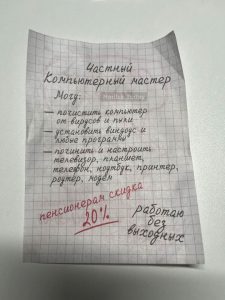 Частный
Компьютерный мастер
Могу:
— почистить компьютер
от вирусов и пыли
— установить виндоус и
любые программы
— починить и настроить
телевизор, планшет,
телефон, ноутбук, принтер,
роутер, модем
пенсионерам скидка
20%
работаю
без
выходных